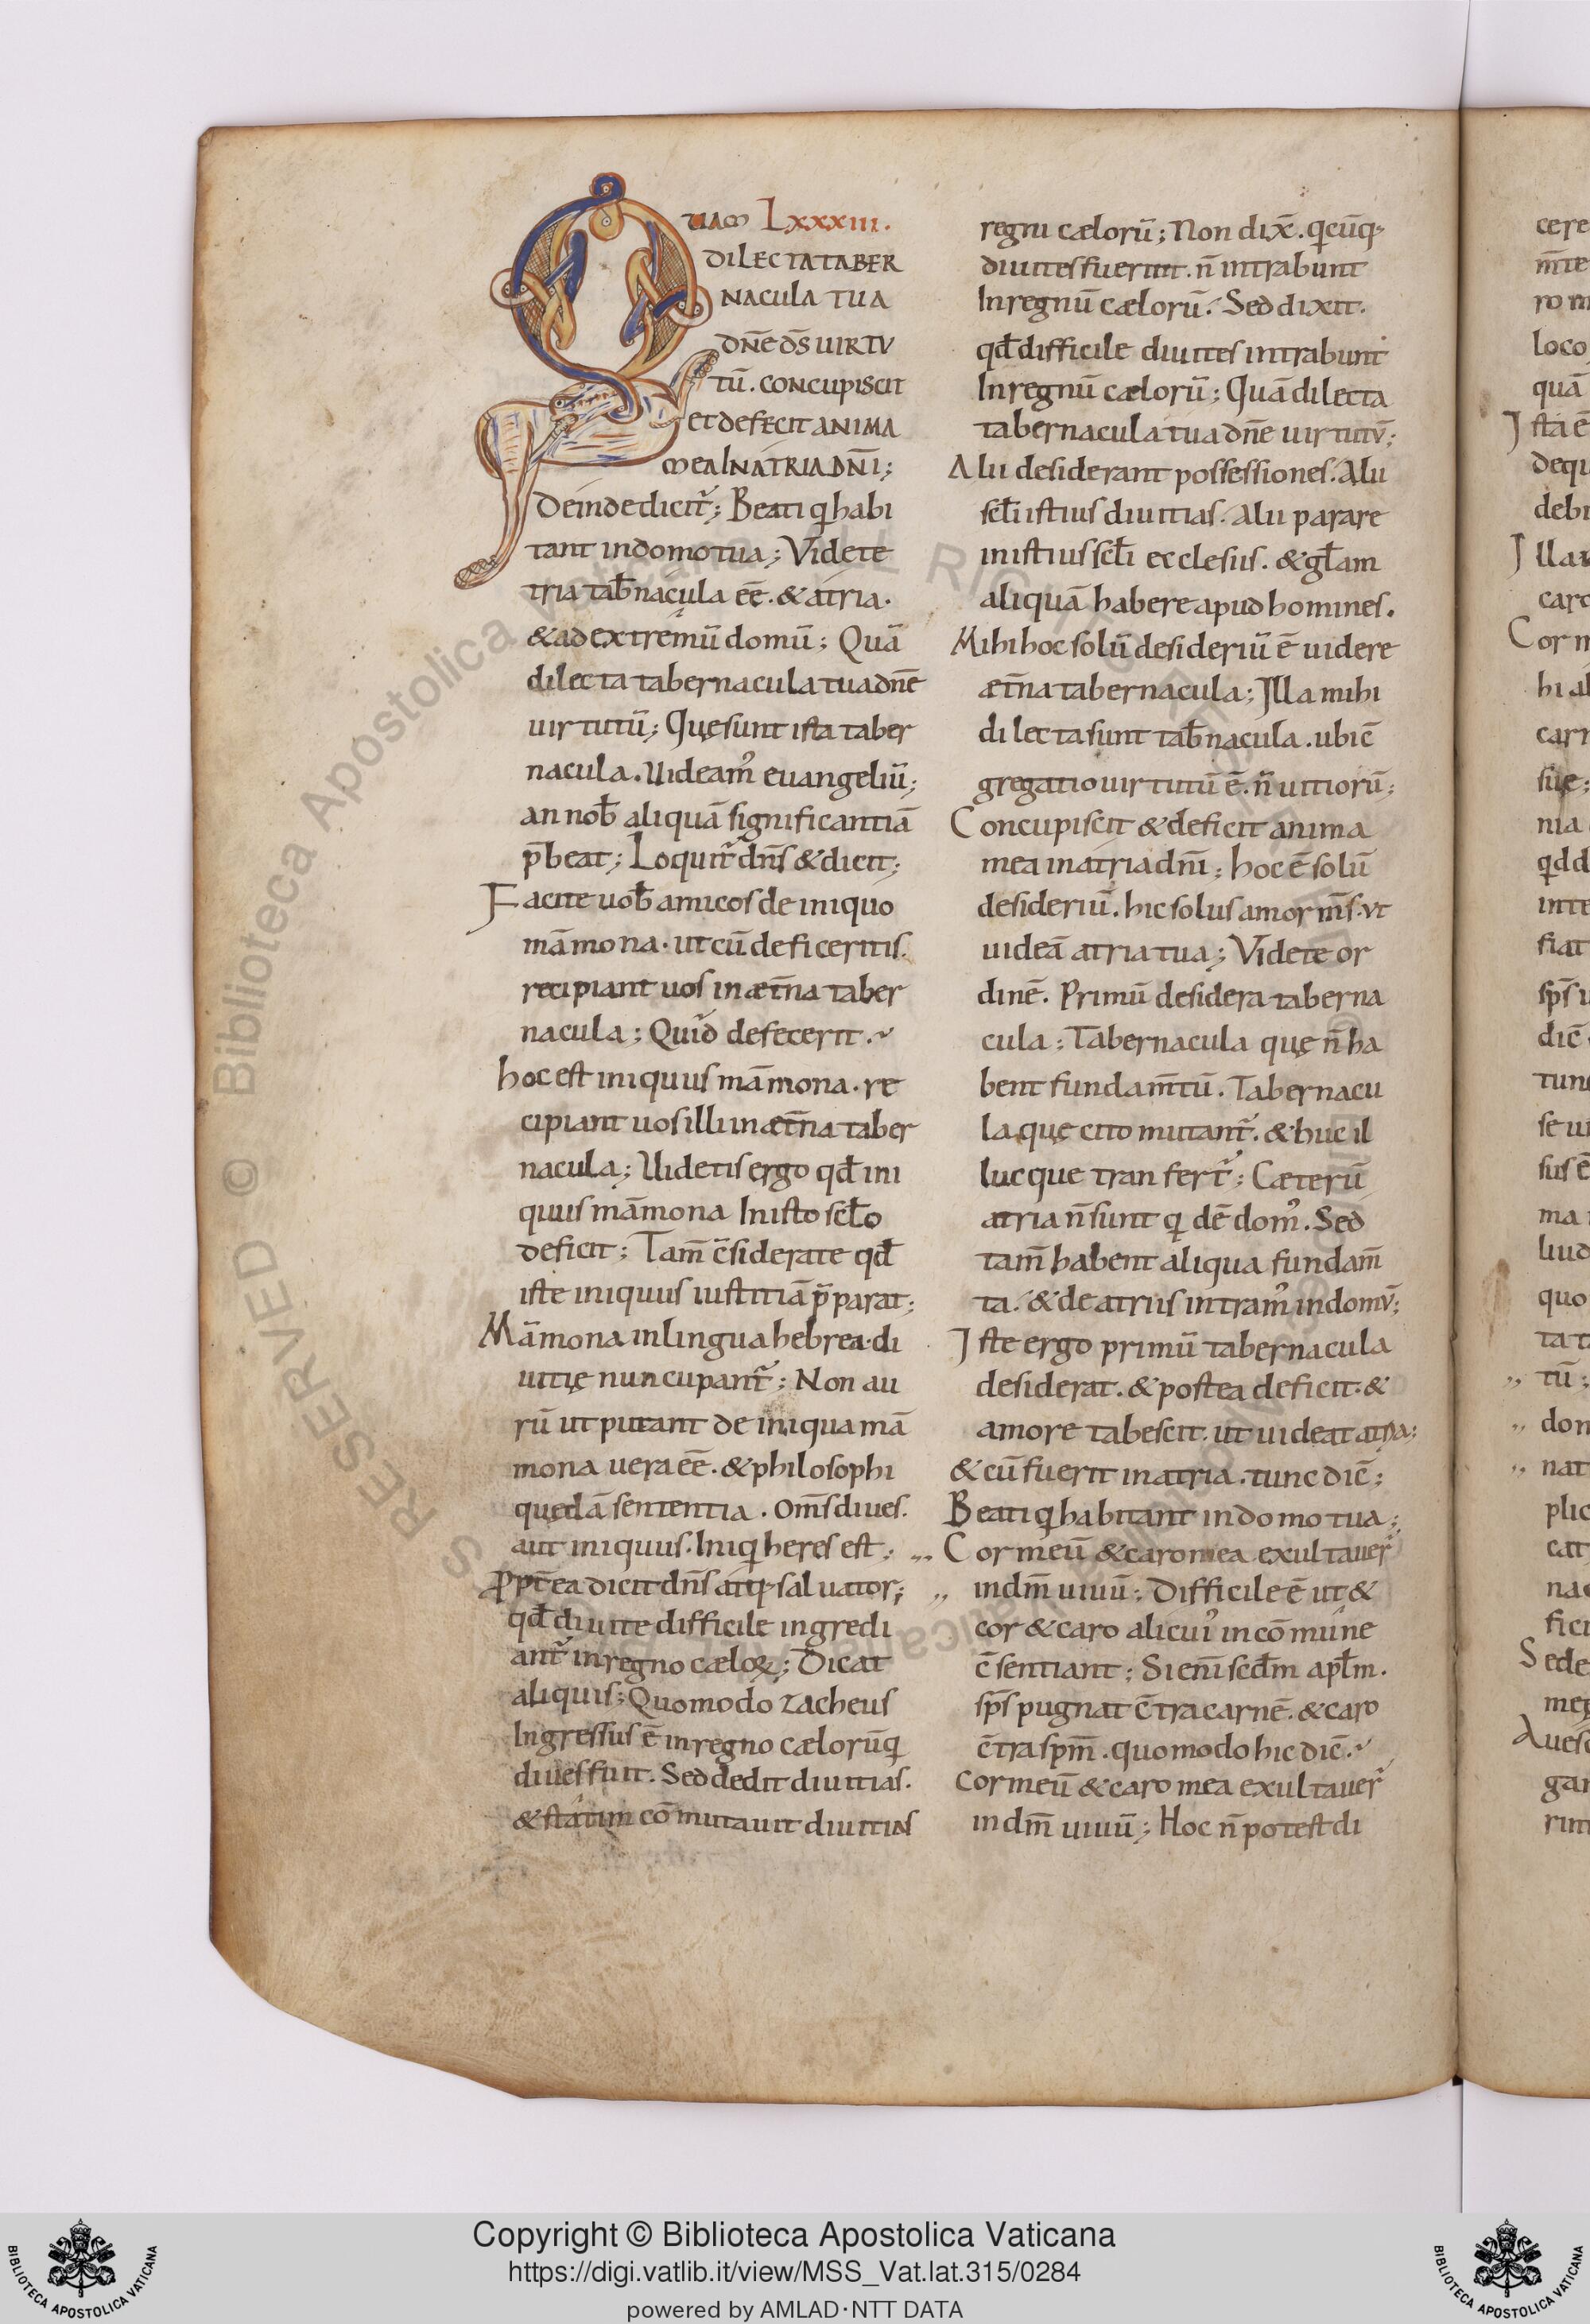 QUAM LXXXIII.
DILECTA TABER
NACULA TUA
DN̄E D̄S UIRTU
TŪ. CONCUPISCIT
ET DEFECIT ANIMA
MEA IN ATRIA DN̄I;
Deinde dicit᷑; Beati q habi
tant in domo tua; Videte
tria tab̄nacula eē̄. & atria.
& ad extremū domū; Quā
dilecta tabernacula tua dn̄e
uirtutū; Quę sunt ista taber
nacula. Uideam᾽ euangeliū;
an nob̄ aliquā significantiā
p̄beat; Loquit᷑ dn̄s & dicit;
Facite uob̄ amicos de iniquo
māmona. ut cū defeceritis.
recipiant uos in æt̄na taber
nacula; Quid defecerit.
hoc est iniquus māmona. re
cipiant uos illi in æt̄na taber
nacula; Uidetis ergo qđ ini
quus māmona In isto sc̄lo
deficit; Tam̄ c̄siderate qđ
iste iniquus iustitiā p̄parat;
Māmona in lingua hebrea. di
uitię nuncupant᷑; Non au
rū ut putant de iniqua mā
mona uera eē̄. & philosophi
quędā sententia. Om̄s diues.
aut iniquus. Iniq heres est;
ꝓpt̄ea dicit dn̄s atq; saluator;
qđ diuite difficile ingredi
ant᷑ in regno cæloꝝ; Dicat
aliquis; Quomodo zacheus
Ingressus ē in regno cælorū q
diues fuit. Sed dedit diuitias.
& statim cōmutauit diuitias
regni cælorū; Non dix̄. qcūq;
diuites fuerint. n̄ intrabunt
In regnū cælorū. Sed dixit.
qđ difficile diuites intrabunt
In regnū cælorū; Quā dilecta
tabernacula tua dn̄e uirtutū;
Alii desiderant possessiones. Alii
sc̄li istius diuitias. Alii parare
in istius sc̄li ecclesiis. & gl̄am
aliquā habere apud homines.
Mihi hoc solū desideriū ē uidere
æt̄na tabernacula; Illa mihi
dilecta sunt tab̄nacula. ubi c̄
gregatio uirtutū ē. n̄ uitiorū;
Concupiscit & deficit anima
mea in atria dn̄i; hoc ē solū
desideriū. hic solus amor m̄s. ut
uideā atria tua; Videte or
dinē. Primū desidera taberna
cula; Tabernacula quę n̄ ha
bent fundam̄tū. Tabernacu
la quę cito mutant᷑. & huc il
lucque tranfert᷑; Cæterū
atria n̄ sunt q dē dom᾽. Sed
tam̄ habent aliqua fundam̄
ta. & de atriis intram᾽ in domū;
Iste ergo primū tabernacula
desiderat. & postea deficit. &
amore tabescit. ut uideat atria;
& cū fuerit in atria. tunc dic̄;
Beati q habitant in domo tua;
Cor meū & caro mea exultauer̄
in dm̄ uiuū; Difficile ē ut &
cor & caro alicui᾽ in cōmune
c̄sentiant; Si eni᷑ scd̄m apl̄m.
sp̄s pugnat c̄tra carnē. & caro
c̄tra spm̄. quomodo hic dic̄.
Cor meū & caro mea exultauer̄
in dm̄ uiuū; Hoc n̄ potest di
Copyright © Biblioteca Apostolica Vaticana
https://digi.vatlib.it/view/MSS_Vat.lat.315/0284
powered by AMLAD·NTT DATA